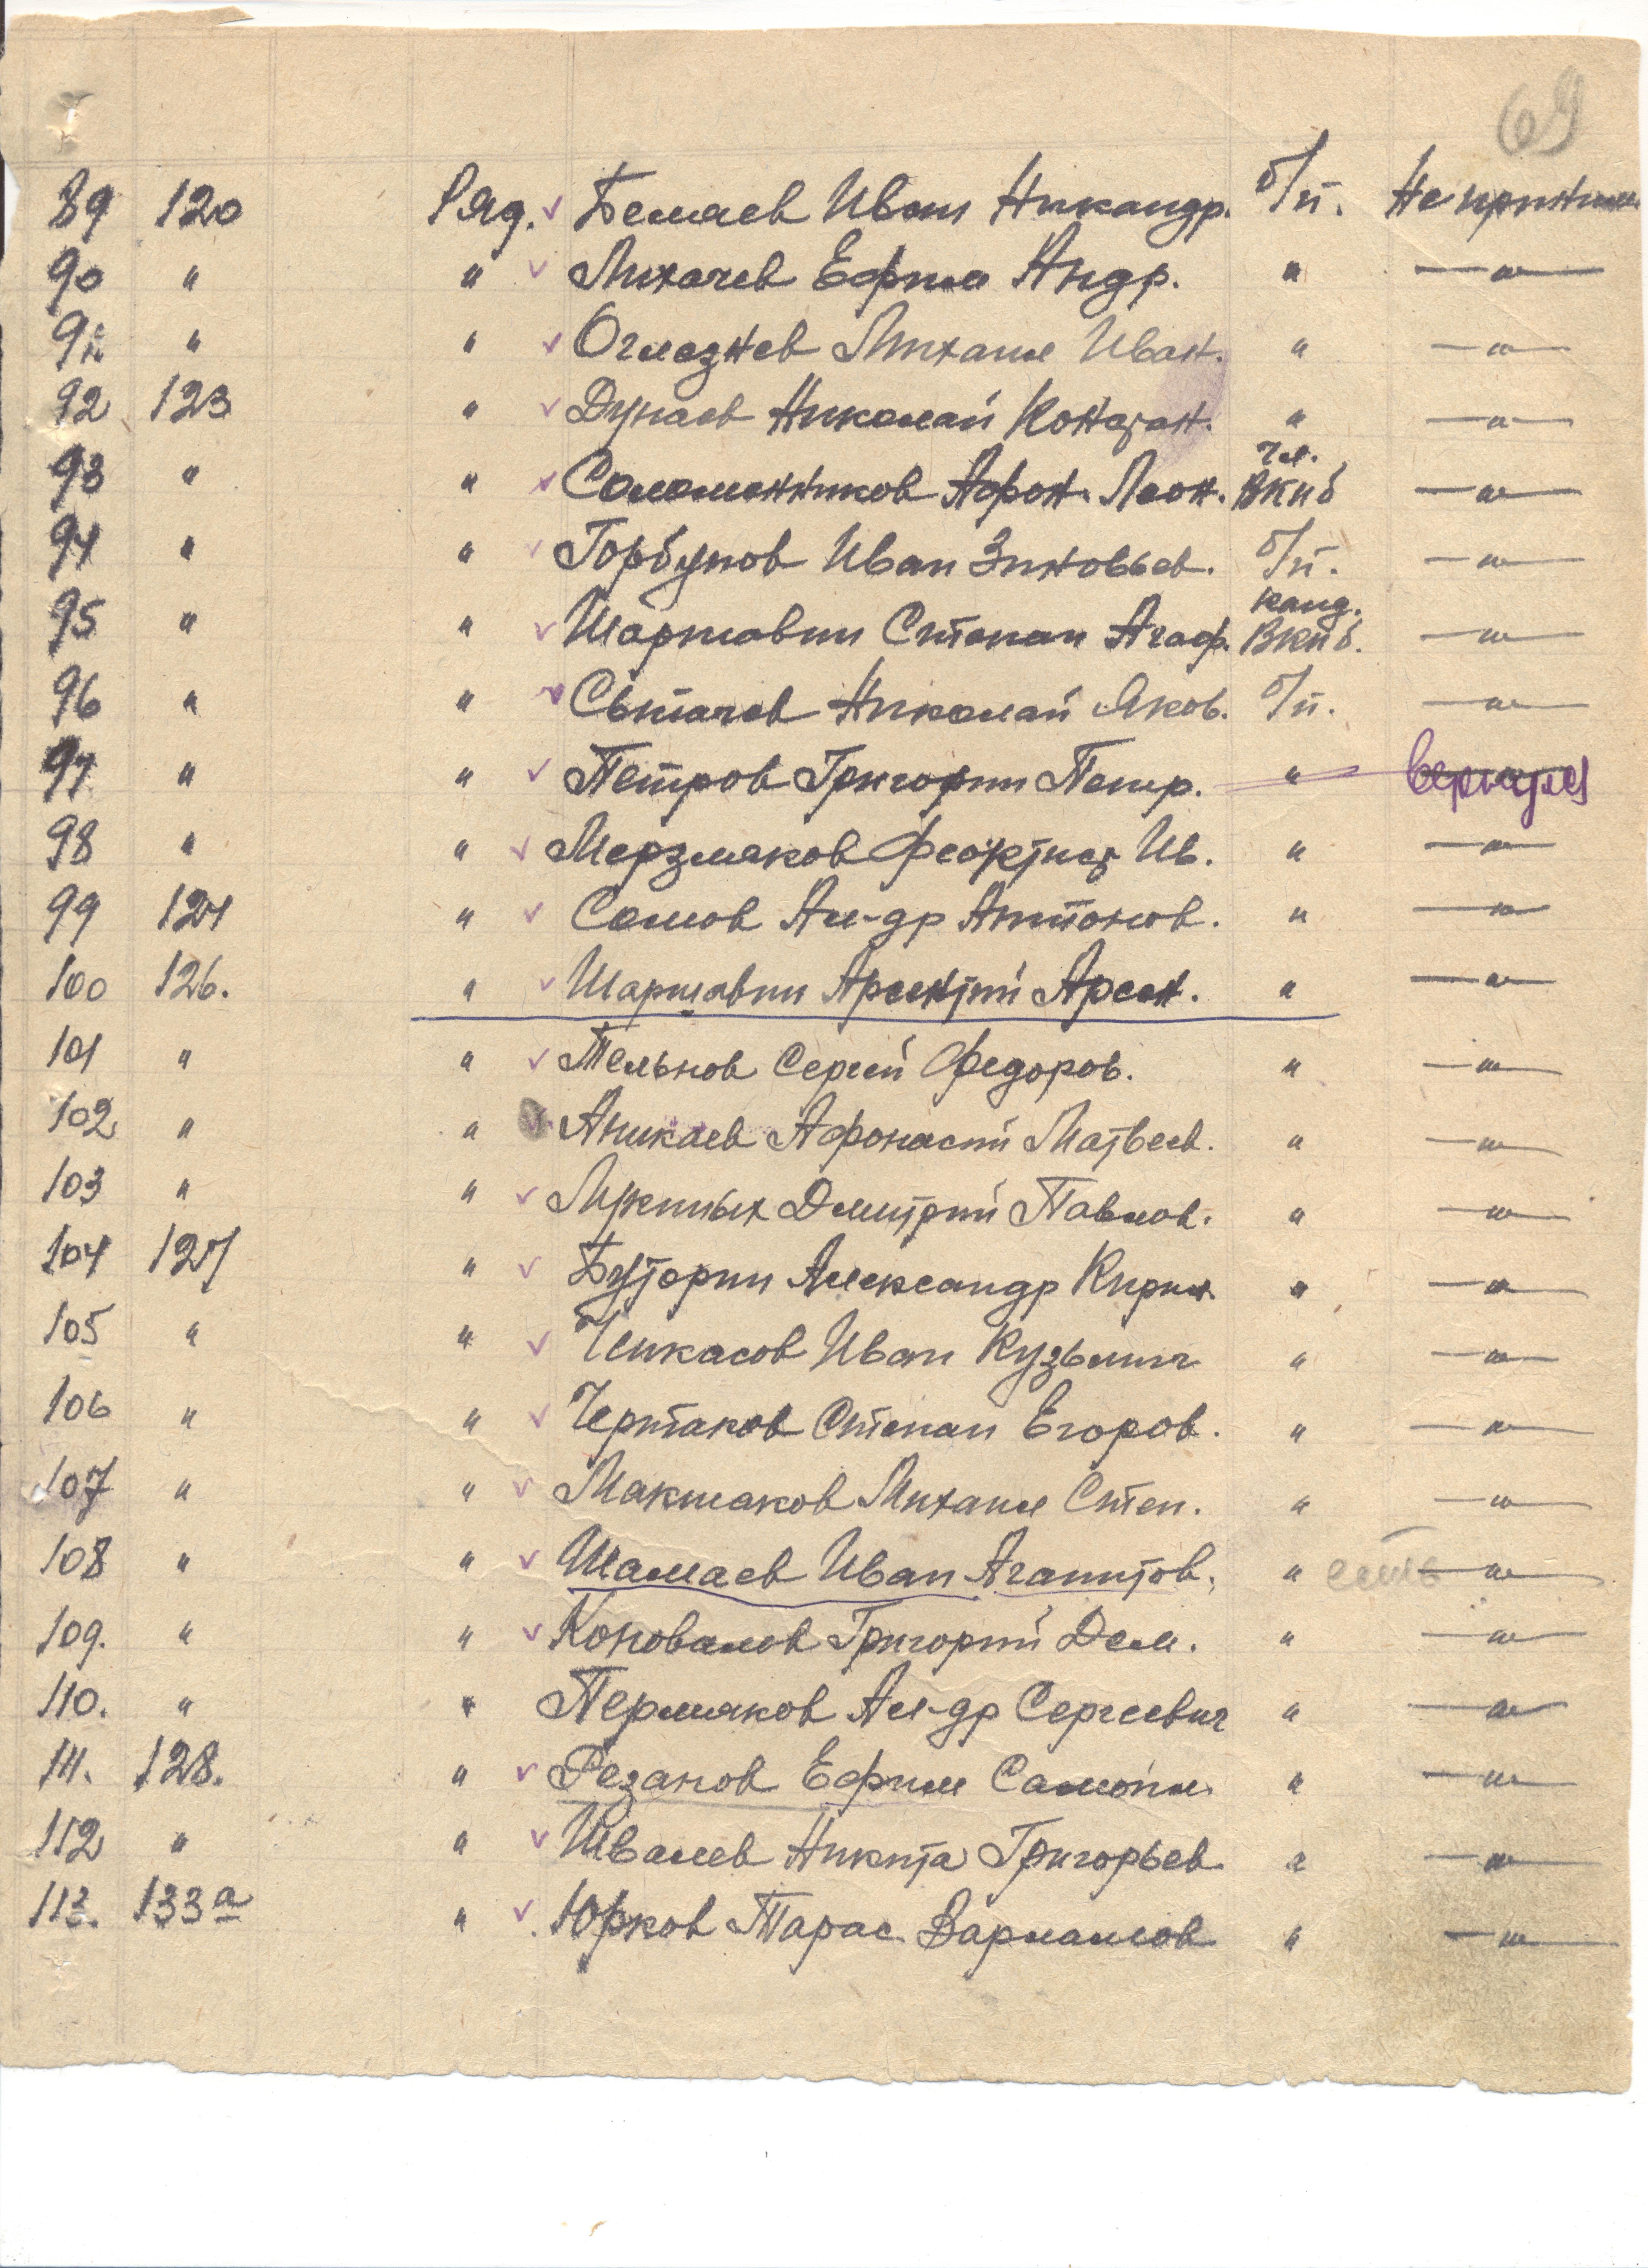 69
89 120 Ряд. Беляев Иван Никандр. б/п. Не приним.
90 " " Лихачев Ефим Андр. " —"—
91. " " Оглезнев Михаил Иван. " —"—
92 123 " Дунаев Николай Констан. " —"—
93 " " Соломенников Афон. Леон. чл. ВКПб —"—
94 " " Горбунов Иван Зиновьев. б/п. —"—
95 " " Шаршавин Степан Агаф. канд. ВКПб. —"—
96 " " Сытачев Николай Яков. б/п. —"—
97 " " Петров Григорий Петр. " вернулся
98 " " Мерзляков Феоктист Ив. " —"—
99 124 " Сомов Ал-др Антонов. " —"—
100 126. " Шаршавин Арсентий Арсен. " —"—
101 " " Тельнов Сергей Федоров. " —"—
102 " " Аникаев Афонасий Матвеев. " —"—
103 " " Дмитрий Павлов. " —"—
104 127 " Буторин Александр Кирил. " —"—
105 " " Чикасов Иван Кузьмич " —"—
106 " " Чертаков Степан Егоров. " —"—
107 " " Макшаков Михаил Степ. " —"—
108 " " Шалаев Иван Агапитов. " есть —"—
109. " " Коновалов Григорий Дем. " —"—
110. " " Пермяков Ал-др Сергеевич " —"—
111. 128. " Резанов Ефим Самойл. " —"—
112 " " Швалев Никита Григорьев. " —"—
113. 133а " Юрков Тарас Варламов " —"—